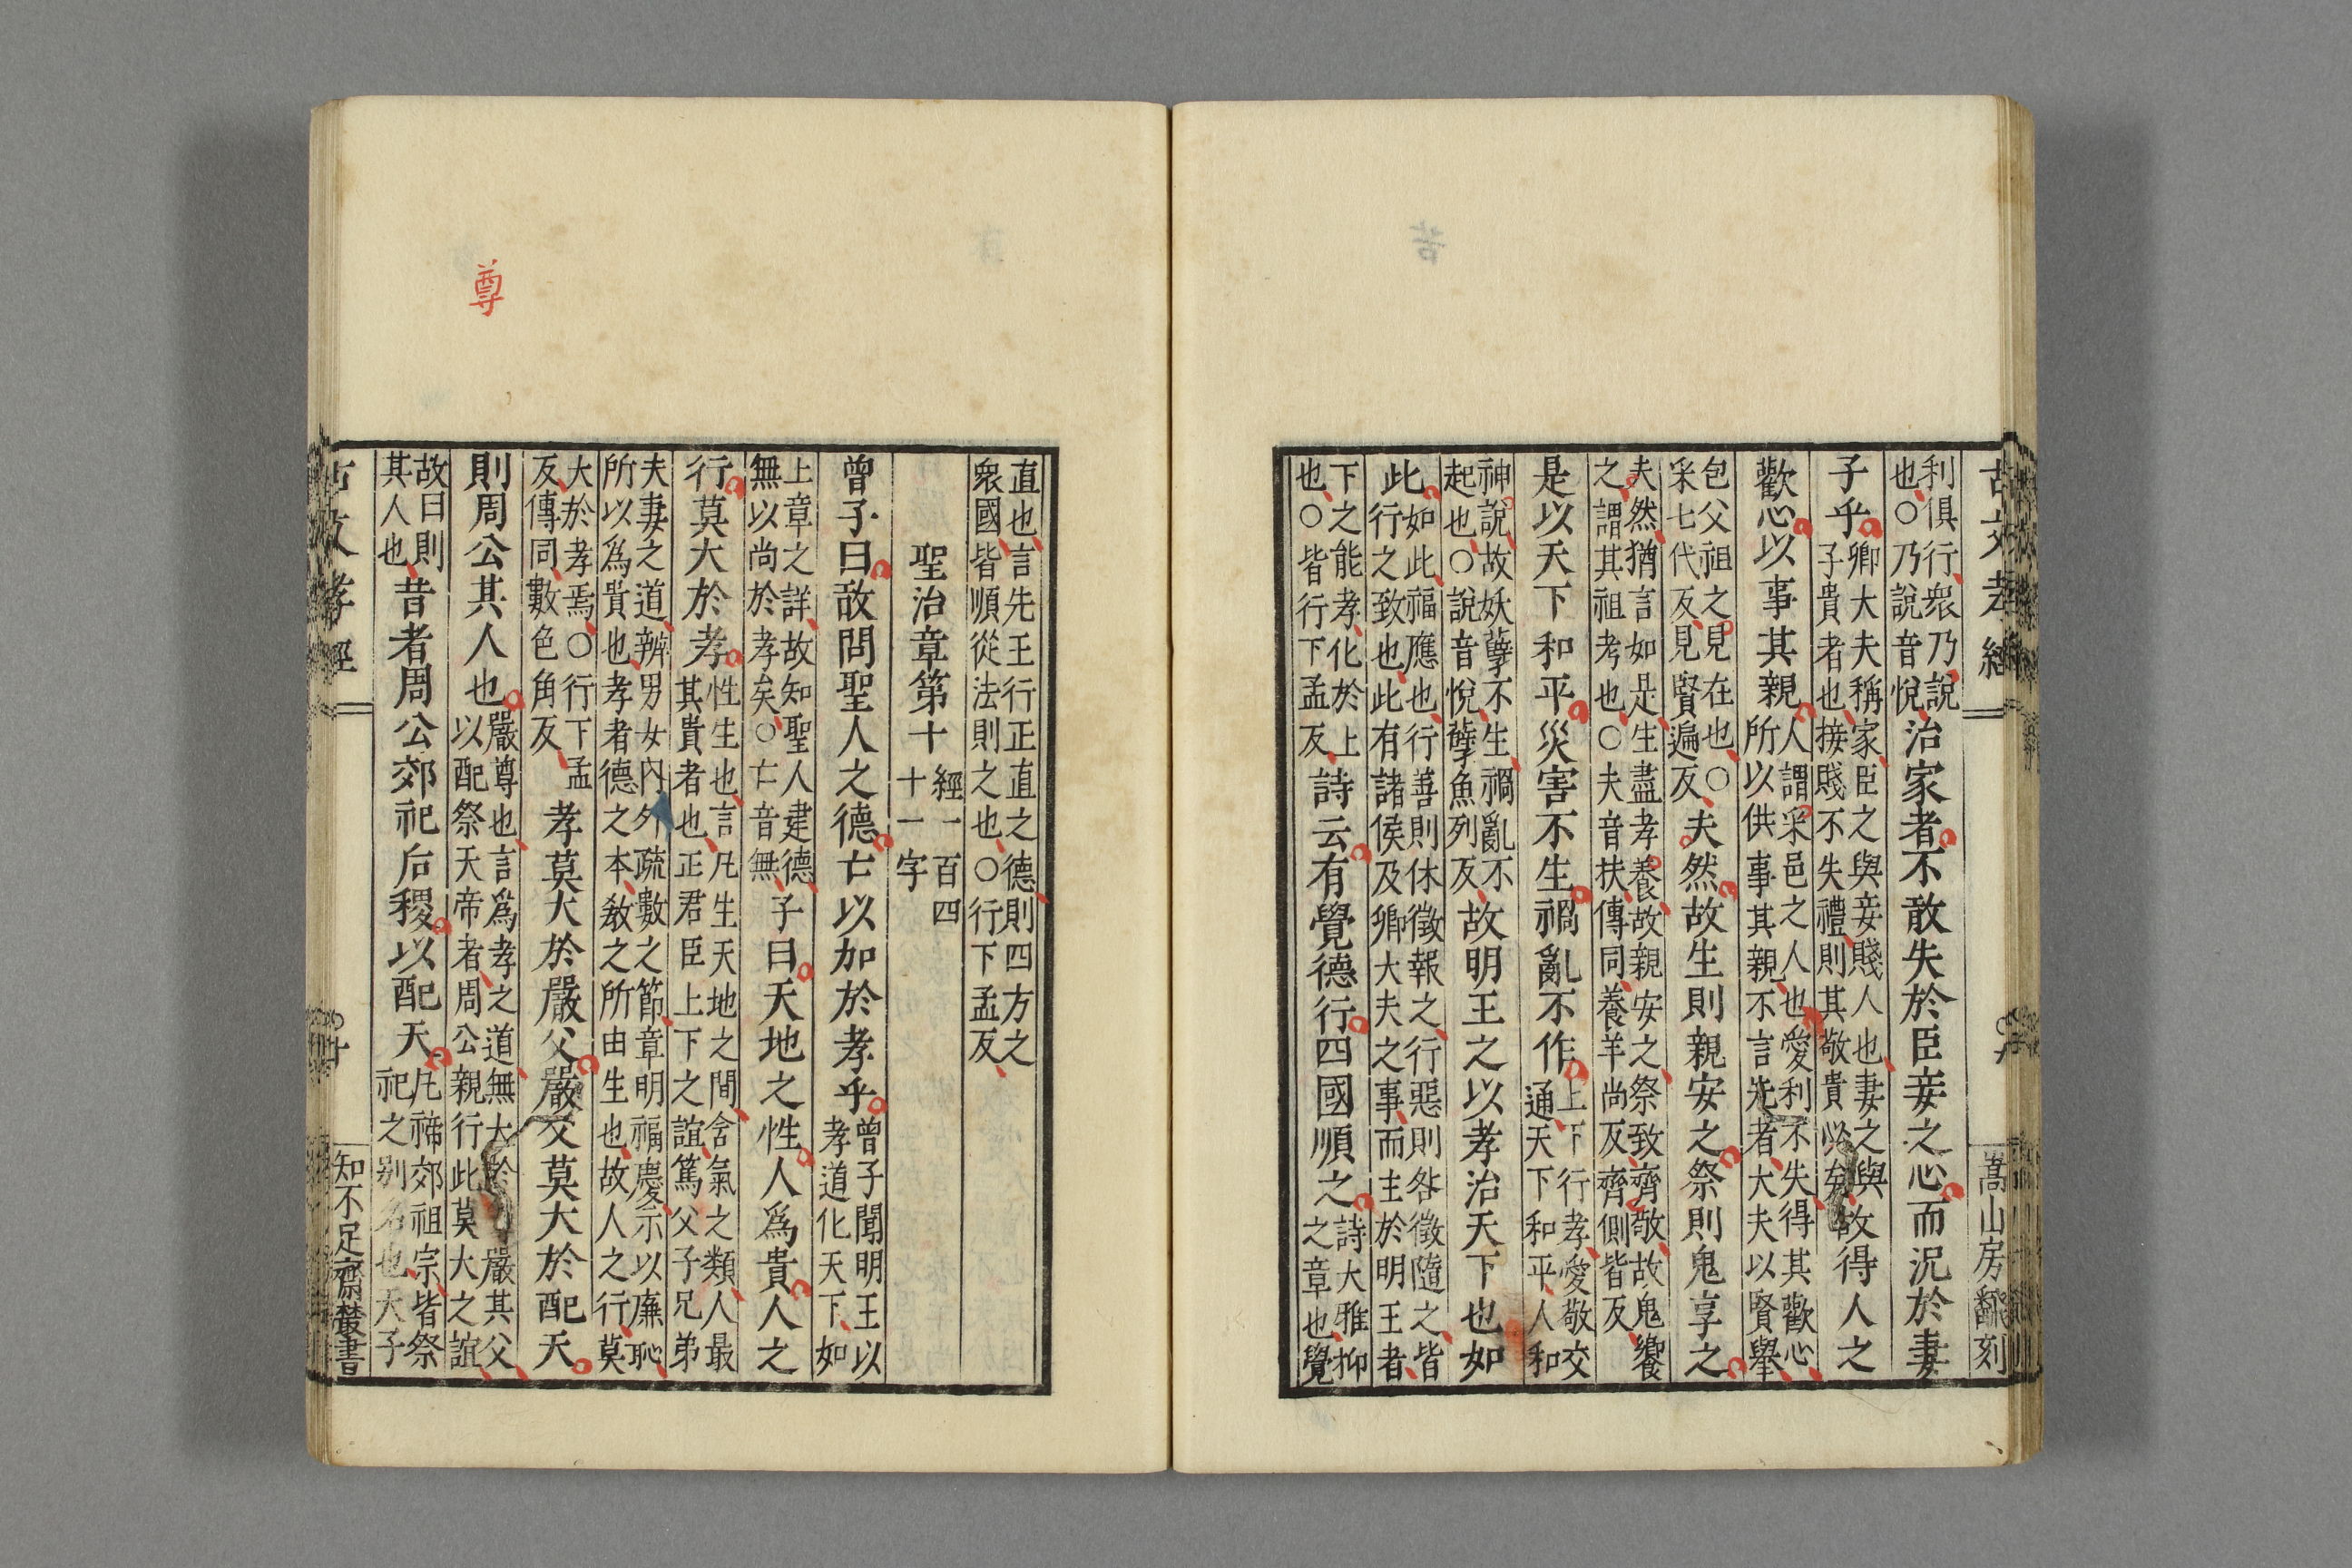 古文孝經
嵩山房翻刻
利俱行衆乃說
也〇乃說音悅
治家者不敢失於臣妾之心而況於妻
子乎
卿大夫稱家臣之與妾賤人也妻之與
子貴者也接賤不失禮則其敬貴以矣
故得人之
歡心以事其親
人謂采邑之人也愛利不失得其歡心
所以供事其親不言先者大夫以賢舉
包父祖之見見在也〇
采七代反見賢遍反
夫然故生則親安之祭則鬼享之
夫然猶言如是生盡孝養故親安之祭致齊敬故鬼饗
之謂其祖考也〇夫音扶傳同養羊尚反齊側皆反
是以天下和平災害不生禍亂不作
上下行孝愛敬交
通天下和平人和
神說故妖孽不生禍亂不
起也〇說音悅孽魚列反
故明王之以孝治天下也如
此
如此福應也行善則休徵報之行惡則咎徵隨之皆
行之致也此有諸侯及卿大夫之事而主於明王者
下之能孝化於上
也〇皆行下孟反
詩云有覺德行四國順之
詩大雅抑
之章也覺
直也言先王行正直之德則四方之
衆國皆順從法則之也〇行下孟反
聖治章第十
經一百四
十一字
曾子曰敢問聖人之德亡以加於孝乎
曾子聞明王以
孝道化天下如
上章之詳故知聖人建德
無以尚於孝矣〇亡音無
子曰天地之性人爲貴人之
行莫大於孝
性生也言凡生天地之間含氣之類人最
其貴者也正君臣上下之誼篤父子兄弟
夫妻之道辨男女內外疏數之節章明福慶示以廉恥
所以爲貴也孝者德之本敎之所由生也故人之行莫
大於孝焉〇行下孟
反傳同數色角反
孝莫大於嚴父嚴父莫大於配天
則周公其人也
嚴尊也言爲孝之道無大於嚴其父
以配祭天帝者周公親行此莫大之誼
故曰則
其人也
昔者周公郊祀后稷以配天
凡禘郊祖宗皆祭
祀之别名也天子
古文孝經
十
知不足齋叢書
尊